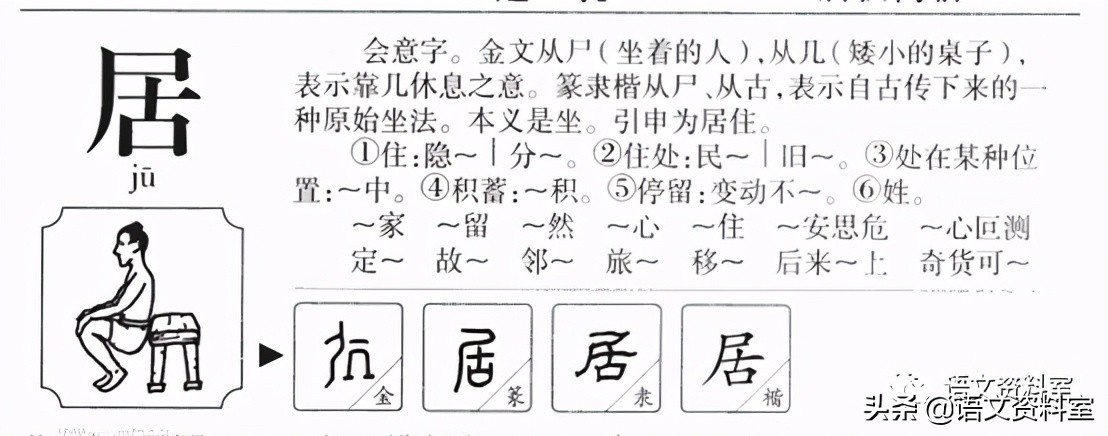 居
jū
会意字。金文从尸(坐着的人),从几(矮小的桌子),
表示靠几休息之意。篆隶楷从尸、从古,表示自古传下来的一
种原始坐法。本义是坐。引申为居住。
①住:隐～|分～。②住处:民～|旧～。③处在某种位
置:～中。④积蓄:～积。⑤停留:变动不～。⑥姓。
～家 ～留 ～然 ～心 ～住 ～安思危 ～心叵测
定～ 故～ 邻～ 旅～ 移～ 后来～上 奇货可～
金
居 篆
居 隶
居 楷
语文资料室
头条@语文资料室